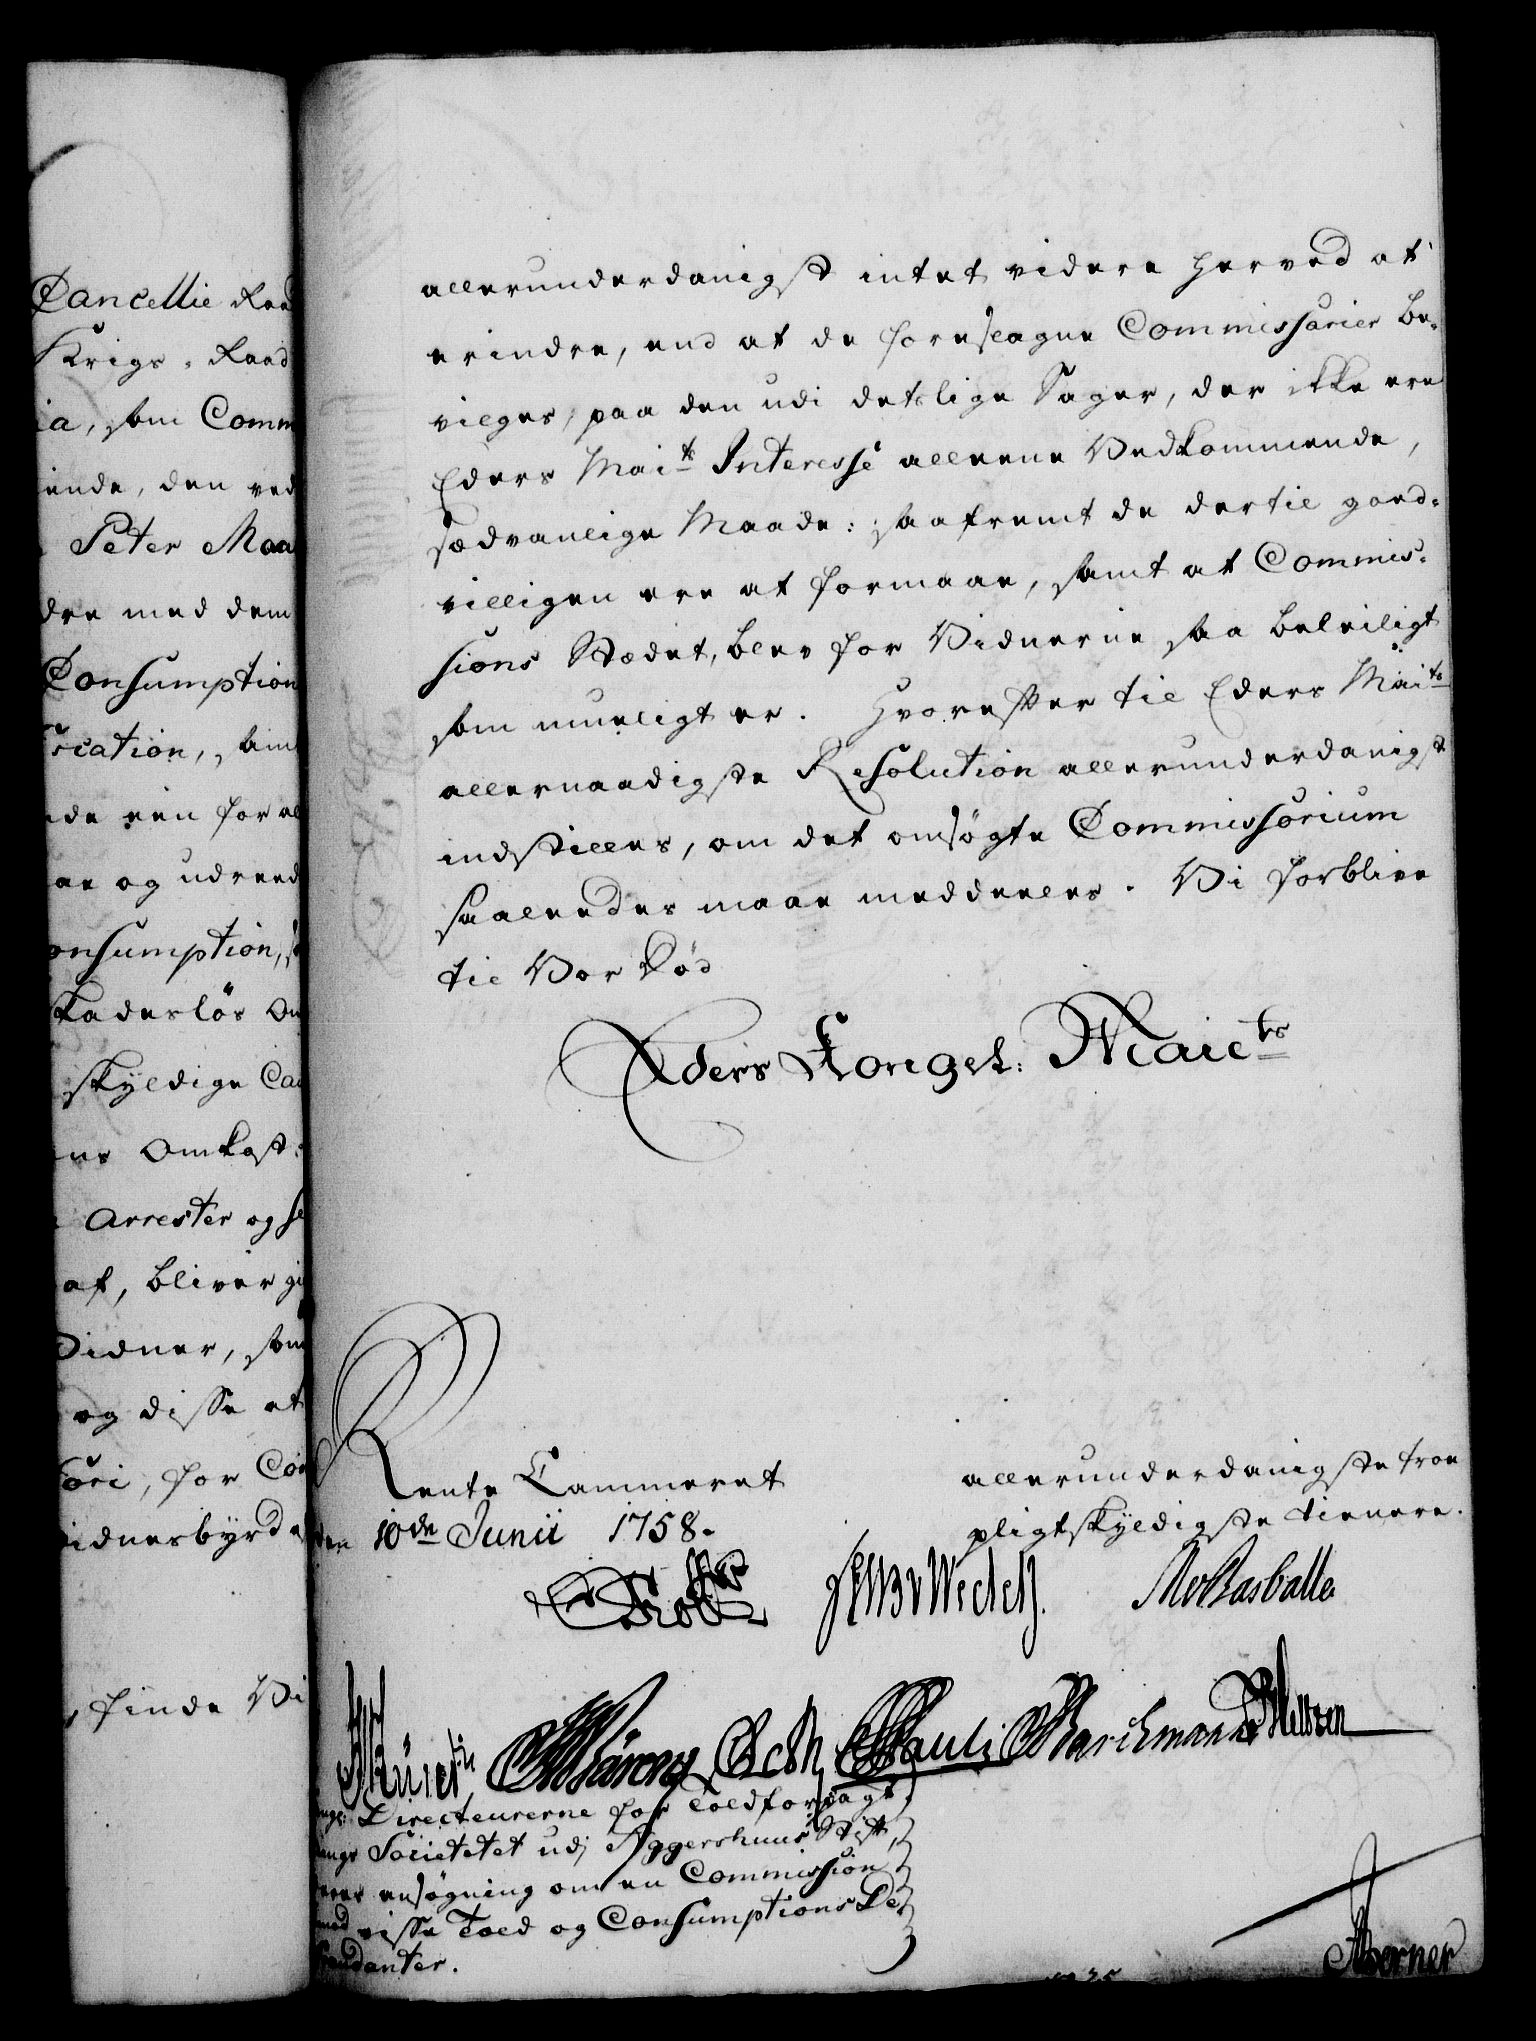 Cancellie Raad
Krigs-Raad
ia, som Comm
ende, den ved
Peter Maa
dre med dem
Consumption
ication, sam
de een for al
ae og udreed
onsumption,
skadesløs
skyldige
ns Omkost:
Arrester og
af, bliver
Vidner, som
og disse at
for
idnesbyrd
finde Vi
allerunderdanigst intet videre herved at
erindre, end at de foreslagne Commissarier be-
vilges, paa den udi deslige Sager, der ikke ere
Eders Maits Interesse alleene Vedkommende,
sædvanlige Maade: saafremt de dertil goed-
villigen ere at formaae, samt at Commis-
sions Stædet, blev for Vidnerne saa beleiligt
som mueligt er. Hvorefter til Eders Maits
allernaadigste Resolution allerunderdanigst
indstilles, om det ansøgte Commissorium
saaleedes maae meddeeles. Vi forblive
til Vor Død
Eders Kongel: Maits
Rente Cammeret
den 10de Junii 1758.
allerunderdanigste troe
pligtskyldigste tienere.
Wedel
Pauli Barchmann
Ang: Directeurerne for Toldforpagt-
nings Societetet udi Aggershuus Stift,
deres ansøgning om en Commission
mod visse Told og Consumptions De-
fraudanter.
Berner